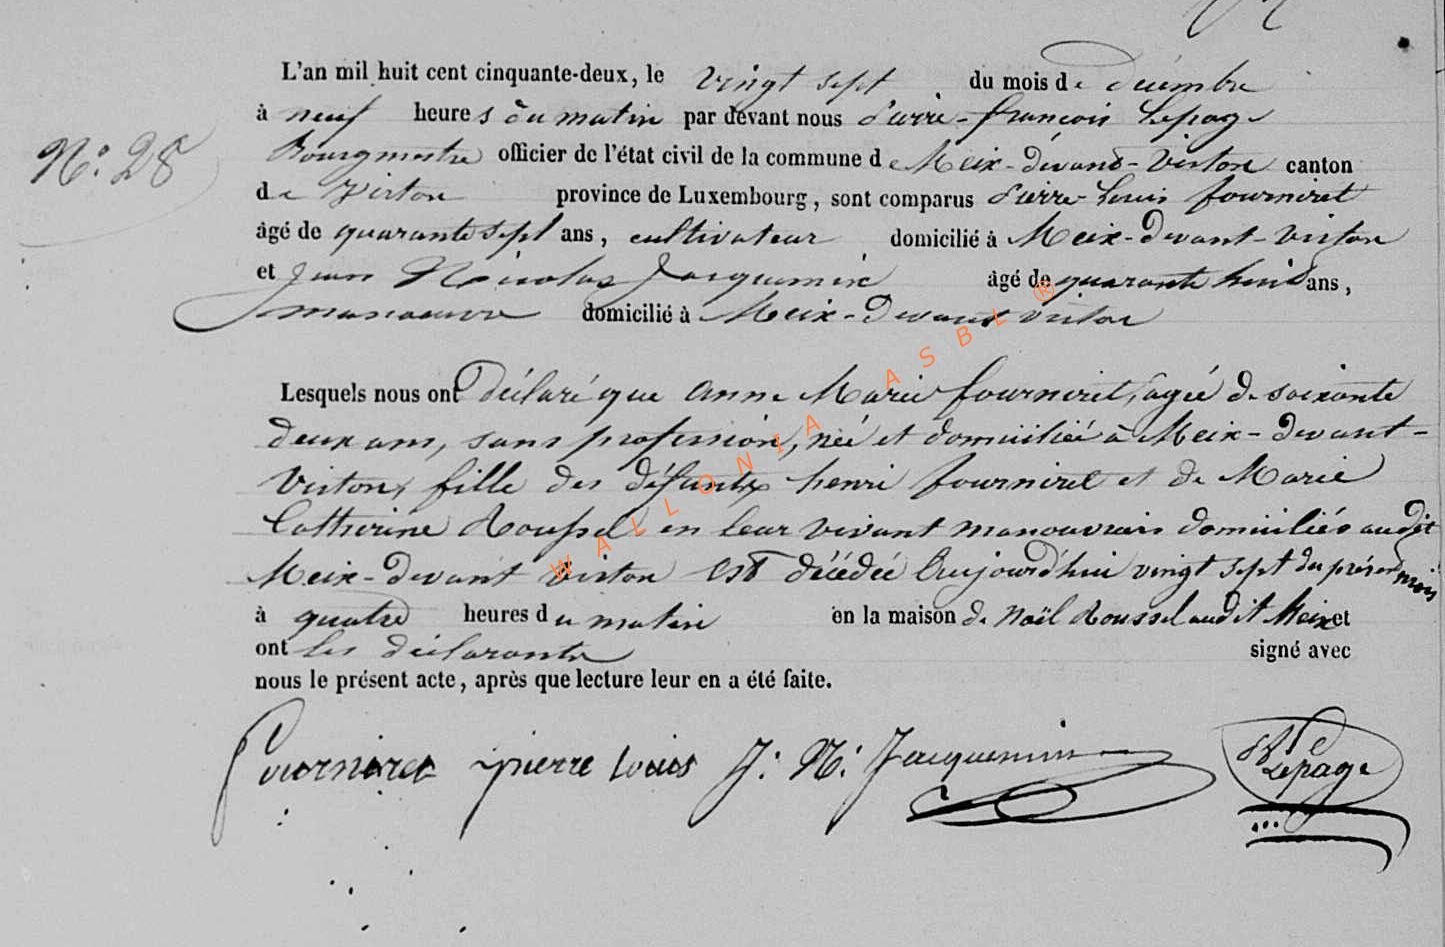 L'an mil huit cent cinquante-deux, le vingt sept du mois de décembre
à neuf heures du matin par devant nous Pierre-françois Lepage
Nº. 28
Bourgmestre officier de l'état civil de la commune de Meix-devant-Virton canton
de Virton province de Luxembourg, sont comparus Pierre-Louis fourniret
âgé de quarante sept ans, cultivateur domicilié à Meix-devant-Virton
et Jean Nicolas Jacquemin âgé de quarante huit ans,
manoeuvre domicilié à Meix-devant Virton
Lesquels nous ont déclaré que anne Marie fourniret, agée de soixante
deux ans, sans profession, née et domiciliée à Meix-devant-
Virton, fille des défunts henri fourniret et de Marie
Catherine Roussel en leur vivant manouvriers domiciliés audit
Meix-devant Virton est décédée aujourd'hui vingt sept du présent mois
à quatre heures du matin en la maison de Noël Roussel audit Meix et
ont les déclarants signé avec
nous le présent acte, après que lecture leur en a été faite.
fourniret pierre louis J. N. Jacquemin Lepage
WALLONIA ASBL ®